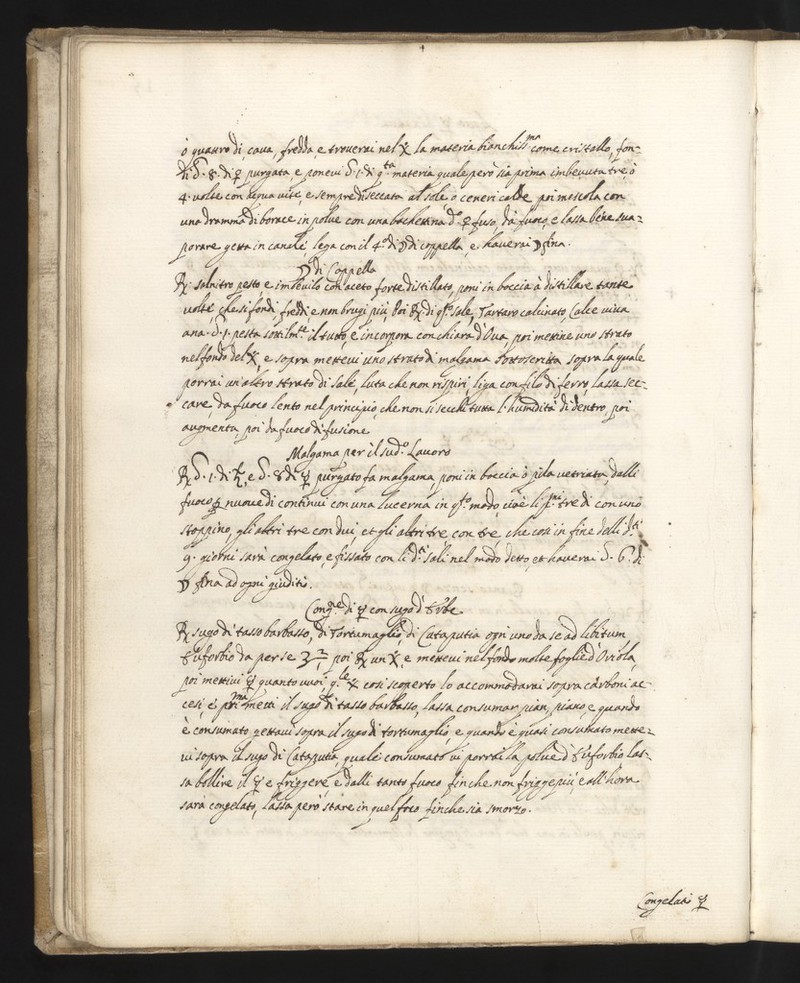 ò quattro dì, cava, fredda, e troverai nel ☿ la materia bianchiss.ma come cristallo, fon-
di ... 8. di ♀ purgata, e ponevi ... 1. di q.ta materia quale però sia prima imbevuta tre, ò
4. volte con acqua vite, e sempre diseccata al sole, ò ceneri calde poi mescola con
una dramma di borace in polve con una bachettina d.o ♀ fuso, dà fuoco, e lassa bene sua-
porare getta in canale, lega con il 4.o di ☽ di coppella, e haverai ☽ fina.
☽ di Coppella
℞. salnitro pesto, e imsevilo con aceto forte distillato, poni in boccia à distillare tante
volte, che si fondi freddi e non brugi più, Poi ℞. di q.to sale, Tartaro calcinato, Calce viva
ana. ... 1. pesta sottilm.te il tutto, e incorpora con chiara d'Ova, poi mettine uno strato
nel fondo del ..., e sopra mettevi uno strato di malgama sottoscritta sopra la quale
porrai un'altro strato di sale, luta che non rispiri, liga con filo di ferro, lassa sec-
care, da fuoco lento nel principio, che non si secchi tutta l'humidità di dentro, poi
augmenta, poi da fuoco di fusione
Malgama per il sud.o Lavoro
℞ ... 1. di ♄, e ... 8 di ☿ purgato fa malgama, poni in boccia ò pila vetriata, dalli
fuoco p nuove dì continui con una lucerna in q.to modo, cioè li p.i tre dì con uno
stoppino, gli altri tre con dui, et gli altri tre, con tre, che così in fine delli d.ti
9. giorni sarà congelato e fissato con li d.i sali nel modo detto, et haverai ... 6. di
☽ fina ad ogni giuditio.
Cong.ne di ☿ con sugo d'Erbe
℞ sugo di tasso barbasso, di Tortumaglio, di Cataputia ogni uno da se ad libitum
Euforbio da per se ..., poi ℞ un ..., e mettevi nel fondo molte foglie d'Oriola,
poi mettivi ☿ quanto vuoi q.le ... così scoperto lo accommodarai sopra carboni ac-
cesi, e pri.ma metti il sugo di tasso barbasso, lassa consumar pian, piano, e quando
è consumato gettavi sopra il sugo di tortumaglio, e quando è quasi consumato mette-
vi sopra il sugo di Cataputia, quale consumato vi porrai la polve d'Euforbio las-
sa bollire il ☿ e friggere, e dalli tanto fuoco finche non frigge più, e all'hora
sarà congelato, lassa però stare in quel foco finche sia smorzo.
Congelati ☿